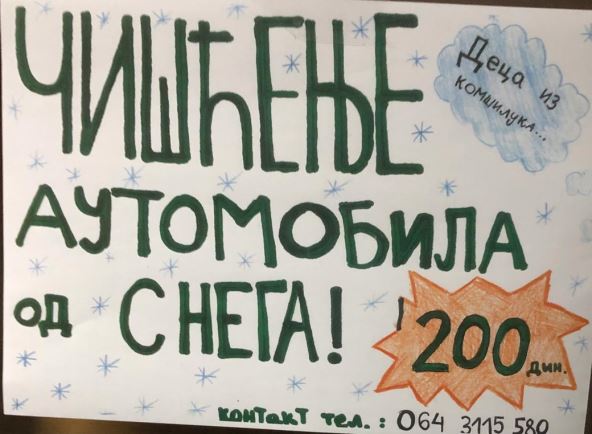 ЧИШЋЕЊЕ
Деца из
комшилука...
АУТОМОБИЛА
од СНЕГА!
200 дин.
контакт тел.: 064 3115 580